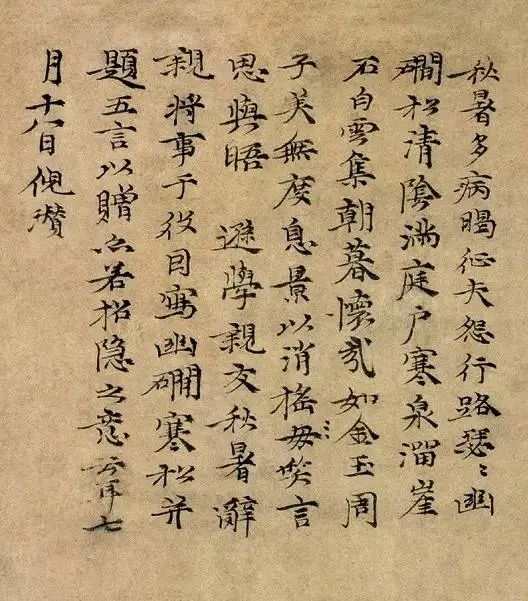 秋暑多病暍征夫怨行路瑟〻幽
磵松清陰滿庭户寒泉溜崖
石白雲集朝暮懷哉如金玉周
子美無度息景以消搖毋笑言
思與晤 遜學親友秋暑辭
親將事于役因寫幽磵寒松并
題五言以贈亦若招隐之意云耳七
月十八日倪瓚